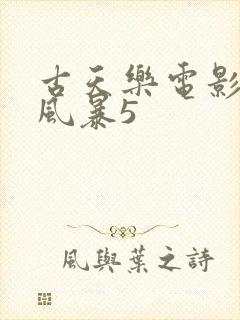 古天樂電影
風暴5
風與葉之詩